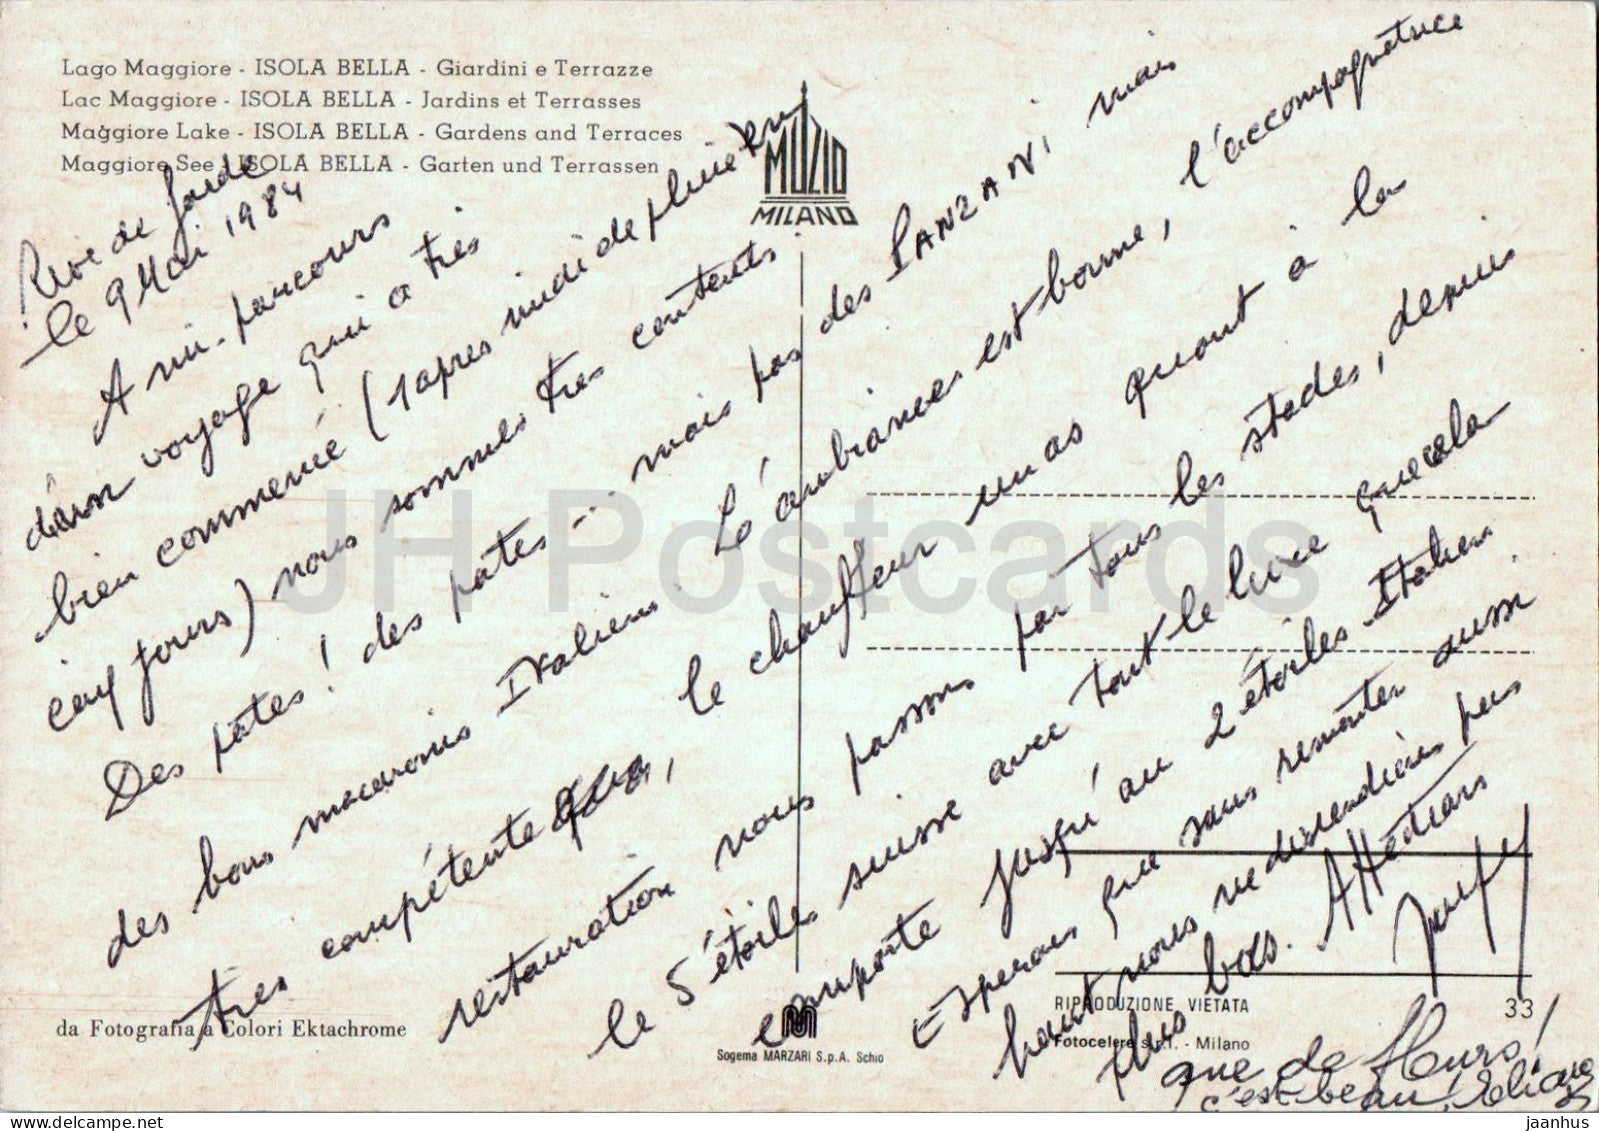 Lago Maggiore - ISOLA BELLA - Giardini e Terrazze
Lac Maggiore - ISOLA BELLA - Jardins et Terrasses
Maggiore Lake - ISOLA BELLA - Gardens and Terraces
Maggiore See - ISOLA BELLA - Garten und Terrassen
MUZIO
MILANO
Riva de Garde
le 9 Mai 1984
A mi-parcours
d'un voyage qui a très
bien commencé (1 après midi de pluie en
cinq jours) nous sommes très contents.
Des pâtes! des pates... mais pas des PANZANI, mais
des bons macaronis Italiens. L'ambiance est bonne, l'accompagnatrice
très compétente, le chauffeur un as quant à la
restauration nous passons par tous les stades, depuis
le 5 étoiles suisse avec tout le luxe que cela
comporte jusqu'au 2 étoiles Italien.
Esperons que sans remonter aussi
haut nous ne descendions pas
plus bas.
que de fleurs!
c'est beau! Eliane
JH Postcards
da Fotografia a Colori Ektachrome
Sogema MARZARI S.p.A. Schio
RIPRODUZIONE VIETATA
33
Fotocelere s.r.l. - Milano
jaanhus